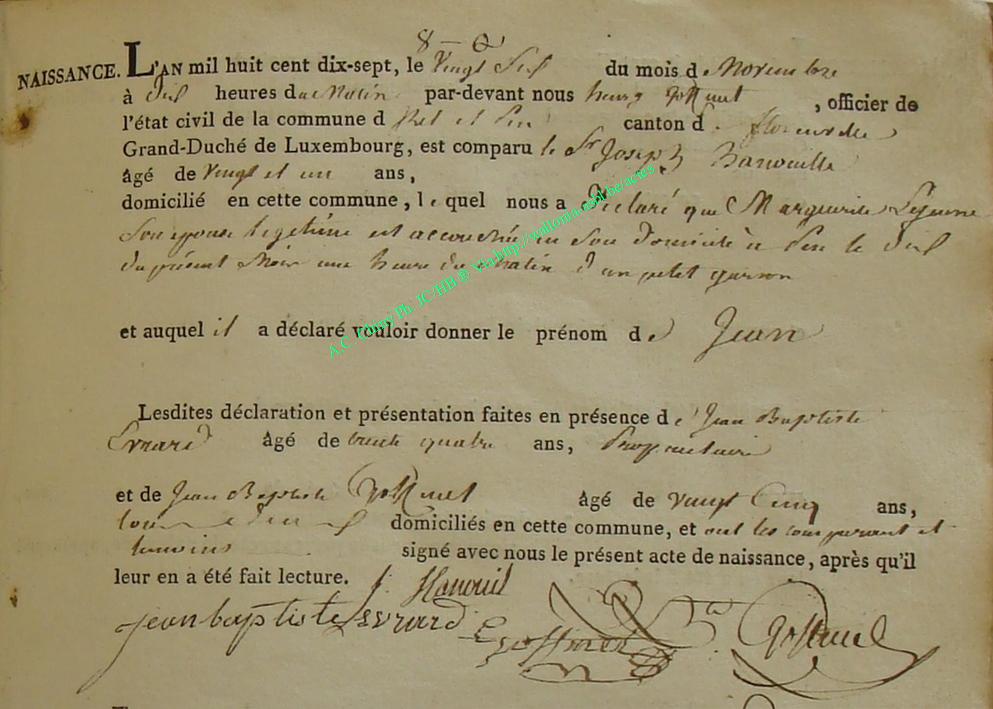 8
NAISSANCE. L'AN mil huit cent dix-sept, le Vingt du mois de Novembre
à heures du Matin par-devant nous henry Goffinet, officier de
l'état civil de la commune d et canton d florenville
Grand-Duché de Luxembourg, est comparu le Sr Joseph
âgé de vingt et un ans,
domicilié en cette commune, le quel nous a Déclaré que Marguerite Lejeune
Son epouse legitime est accouchée en Son Domicile à le
du présent Mois une heure du Matin d'un petit garson
et auquel il a déclaré vouloir donner le prénom de Jean
Lesdites déclaration et présentation faites en présence de Jean Baptiste
Evrard âgé de trente quatre ans, Proprietaire
et de Jean Baptiste Goffinet âgé de vingt Cinq ans,
tous domiciliés en cette commune, et ont les comparant et
temoins signé avec nous le présent acte de naissance, après qu'il
leur en a été fait lecture.
jean baptiste Evrard goffinet Goffinet